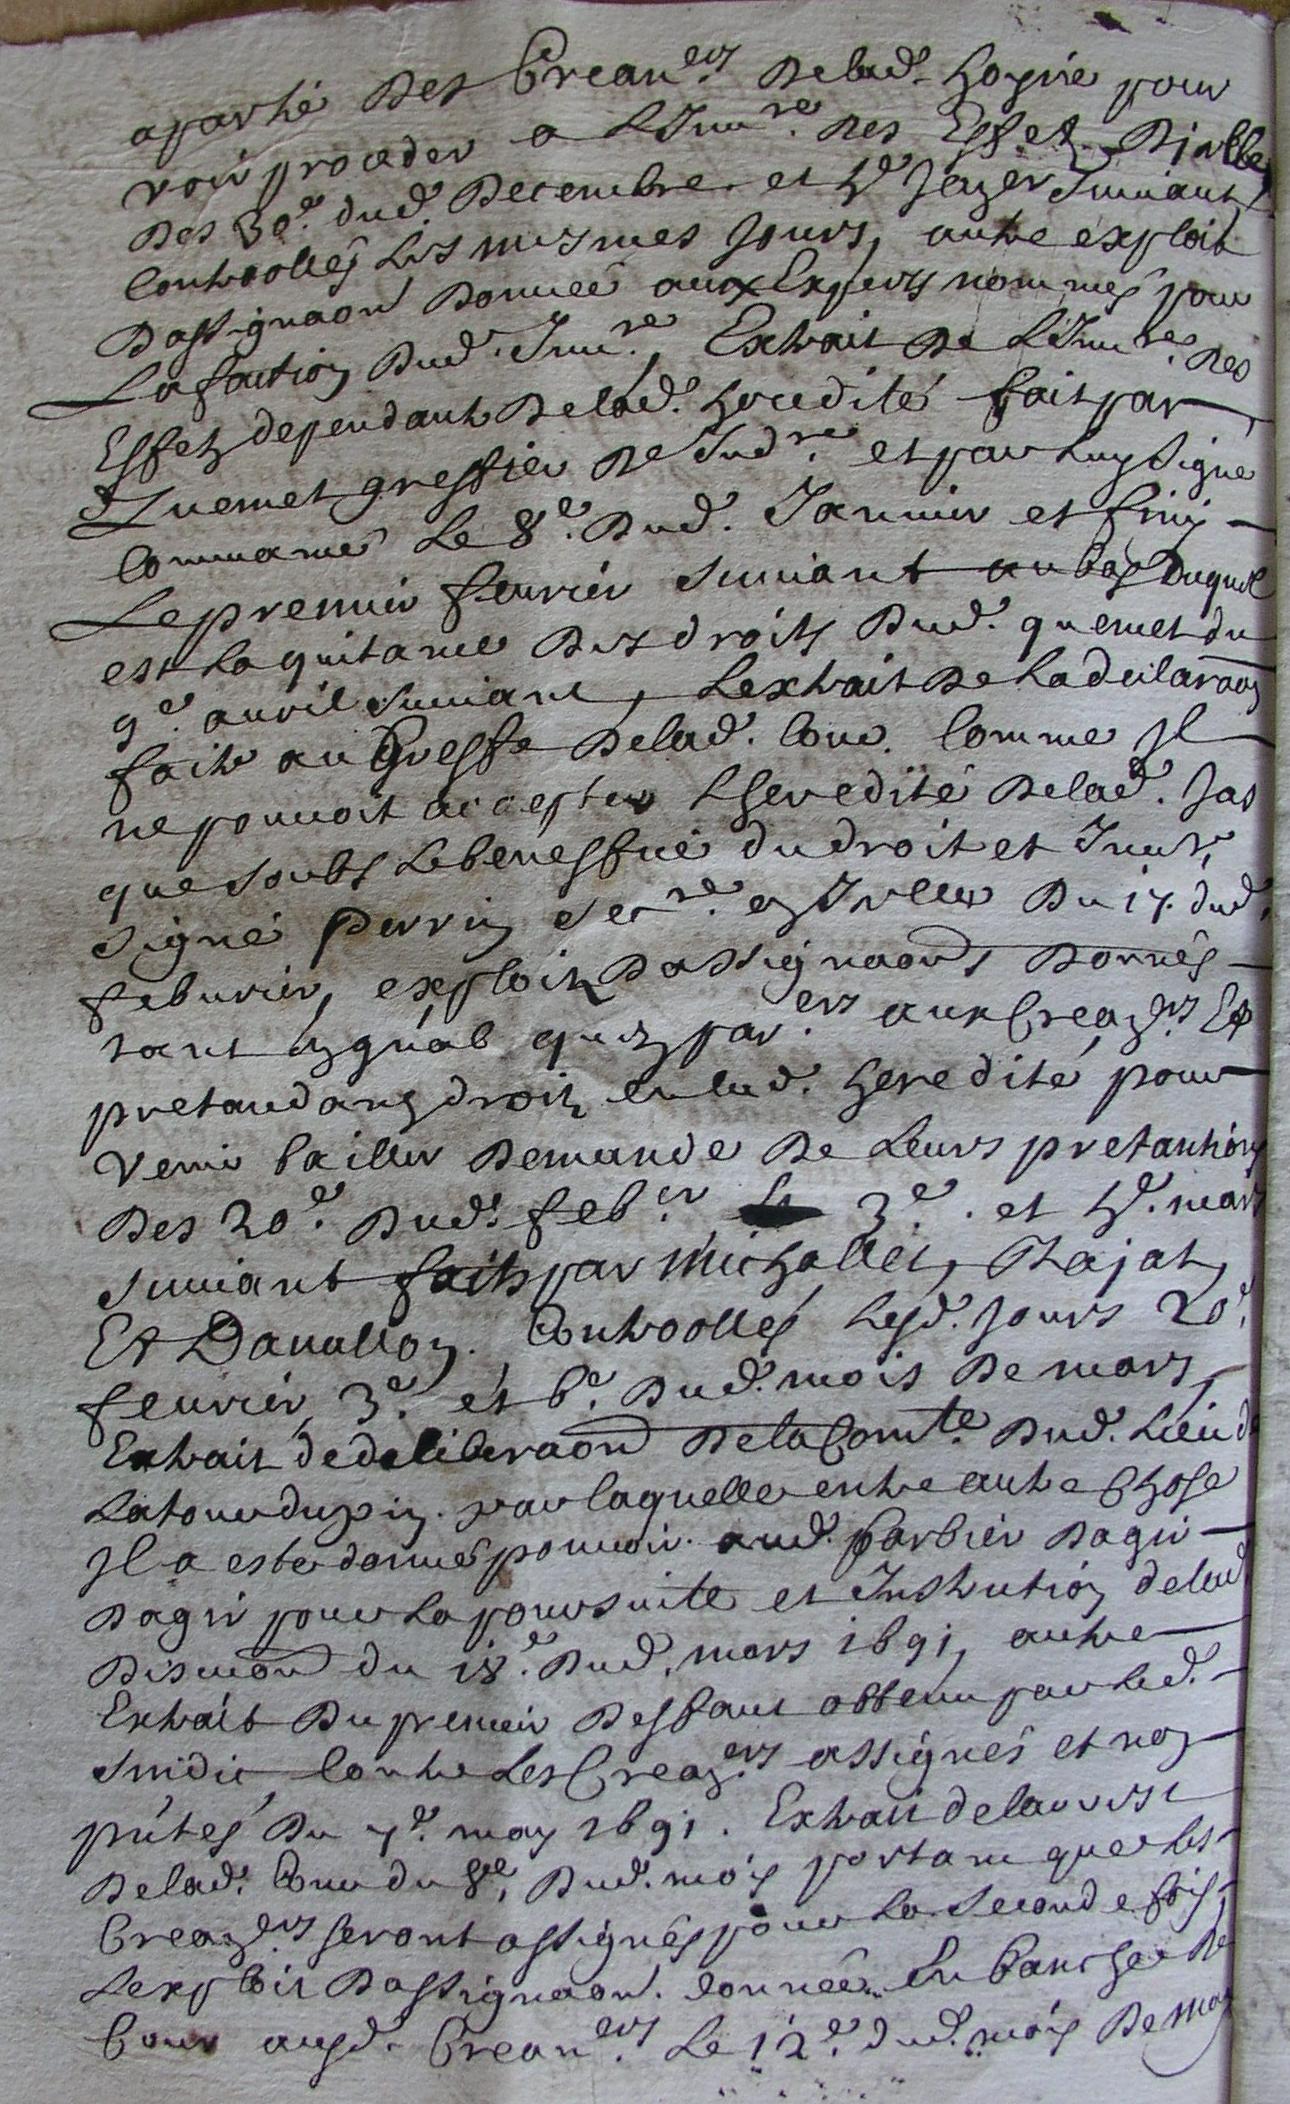 a partie des Crean.ers delad.e hoyrie pour
voir proceder a L'Inu.re des Effetz Dicelle
des 30.e dud. Decembre et 4.e Jäẽr Suiuant
Controollés les mesmes Jours, autre exploit
Dassignaõn donneé aux Experts nommés pour
La faction Dud. Inu.re, Extrait de L'Inu.re des
Effetz dependants delad.e heredité fait par
Quemet greffier et par luy Signé
Commancé Le 8.e Dud. Januier et finy
Le premier feurier Suiuant au bas Duquel
est La quitance des droits Dud. quemet du
9.e auril Suiuant, Lextrait de La declaraõn
faite au Greffe delad. Cour. Comme Il
ne pouuoit accepter L'heredité delad.
que soubs Le beneffice du droit et Inu.re
Signé perrin Sec.re du 17. dud.
feburier, exploitz dassignaõns donnés
tant en gñal quen par.ers aux Crean.ers Et
pretandans droitz en lad. heredité pour
venir bailler demande de Leurs pretantions
des 20.e Dud. feb.er 3.e et 4.e mars
Suiuant faits par Michallet,
Et Dauallon. Controollés Lesd. Jours 20.e
feurier, 3.e et 6.e Dud. mois de mars,
Extrait de deliberaõn de la Com.te Dud. Lieu de
Latour dupin. par laquelle entre autre Chose
Il a esté donné pouuoir aud. barbier dagir
Dagir pour La poursuite et Instrution delad.
Discuõn du 18.e Dud. mars 1691, autre
Extrait du premier Deffaut obtenu par led.
Sindic Contre Les Crean.ers assignés et non
pñtés du 7.e may 1691. Extrait de
delad. Cour du 8.e Dud. mois portant que les
Crean.ers seront assignés pour La Seconde fois,
Lexploit Dassignaõn donneé En banche de
Cour ausd. Crean.ers Le 12.e dud. mois de may